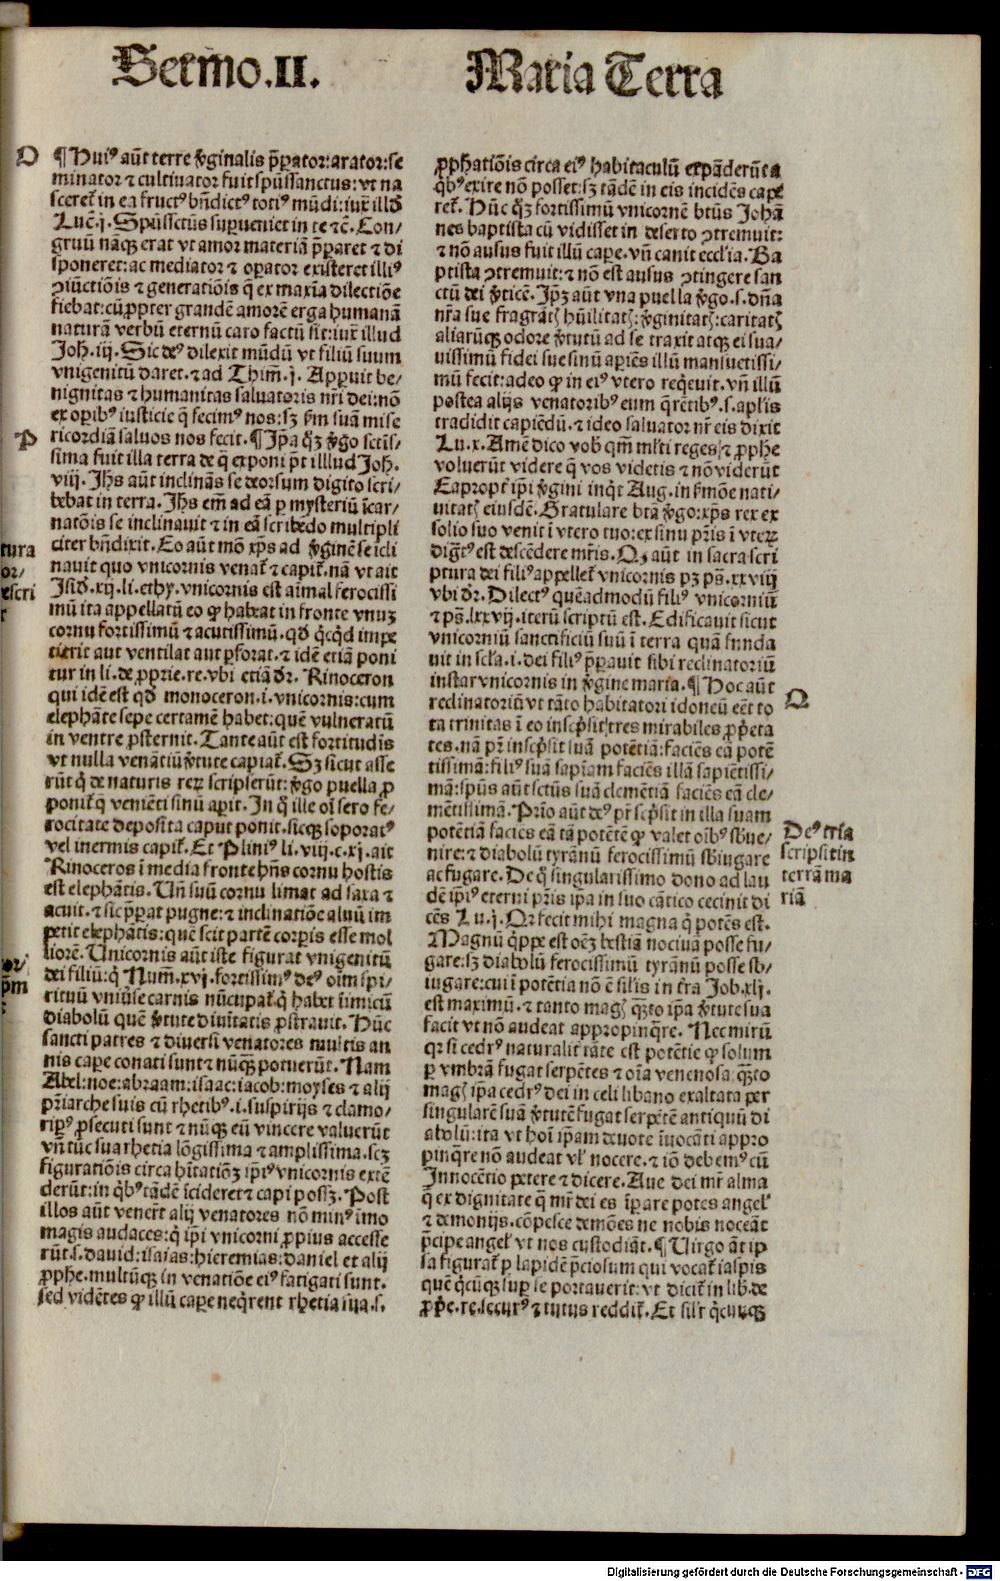 Sermo.II. Maria Terra
O
¶ Huiꝰ aūt terre v̓ginalis p̄parator: arator: se
minator ⁊ cultiuator fuit spūssanctus: vt na
sceret᷑ in ea fructꝰ bn̄dictꝰ totiꝰ mūdi: iux̄ illđ
Luc̄.j. Spūssctūs suꝑueniet in te ⁊c̄. Con/
gruū nāqꝫ erat vt amor materiā p̄pararet ⁊ di
sponeret: ac mediator ⁊ oꝑator existeret illiꝰ
ꝯiūctiōis ⁊ generatiōis q̄ ex maxīa dilectiōe
fiebat: cū ꝓpter grandē amorē erga humanā
naturā verbū eternū caro factū sit: iux̄ illud
Joh̄.iij. Sic deꝰ dilexit mūdū vt filiū suum
vnigenitū daret. ⁊ ad Thim̄.j. Apparuit be/
nignitas ⁊ humanitas saluatoris nr̄i dei: nō
ex oꝑibꝰ iusticie q̄ fecimꝰ nos: sꝫ ẜm suā mise
P
ricordiā saluos nos fecit. ¶ Ip̄a qꝫ v̓go sctīs/
sima fuit illa terra de q̄ exponi p̄t illlud Joh̄.
viij. Jh̄s aūt inclinās se deorsum digito scri/
bebat in terra. Jh̄s em̄ ad eā ꝑ mysteriū īcar/
natōis se inclinauit ⁊ in eā scribēdo multipli
citer bn̄dixit. Eo aūt mō xp̄s ad v̓ginē se īcli
nauit quo vnicornis venat᷑ ⁊ capit᷑. nā vt ait
Jsid̄.xij.li.ethy. vnicornis est aīmal ferocissi
mū ita appellatū eo ꝙ habeat in fronte vnuꝫ
cornu fortissimū ⁊ acutissimū. qd̄ q̇cqd̄ impe
tierit aut ventilat aut ꝑforat. ⁊ idē etiā poni
tur in li. de ꝓprie.re. vbi etiā dr̄. Rinoceron
qui idē est qd̄ monoceron .i. vnicornis: cum
elephāte sepe certamē habet: quē vulneratū
in ventre ꝓsternit. Tante aūt est fortitudīs
vt nulla venātiū v̓tute capiat᷑. Sꝫ sicut asse
rūt q̇ de naturis reꝝ scripserūt: v̓go puella ꝓ
ponit᷑ q̄ veniēti sinū aꝑit. In q̊ ille oī sero fe/
rocitate deposita caput ponit. sicqꝫ soporatꝰ
vel inermis capit᷑. Et Pliniꝰ li.viij.c.xj. ait
Rinoceros ī media fronte hn̄s cornu hostis
est elephātis. Un̄ suū cornu limat ad saxa ⁊
acuit. ⁊ sic p̄parat pugne: ⁊ inclinatiōe aluū im
petit elephātis: quē scit partē corꝑis esse mol
liorē. Unicornis aūt iste figurat vnigenitū
dei filiū: q̇ Num̄.xvj. fortissimꝰ deꝰ oīm spi/
rituū vniu̓se carnis nūcupat᷑ q̇ habet īimicū
diabolū quē v̓tute diuītatis ꝓstrauit. Hūc
sancti patres ⁊ diuersi venatores multis an
nis caꝑe conati sunt ⁊ nūqꝫ potuerūt. Nam
Abel: noe: abraam: isaac: iacob: moyses ⁊ alij
pr̄iarche suis cū rhetibꝰ .i. suspirijs ⁊ clamo/
ribꝰ ꝓsecuti sunt ⁊ nūqꝫ eū vincere valuerūt
vn̄ tūc sua rhetia lōgissima ⁊ amplissima. scꝫ
figuratiōis circa hītatiōꝫ ip̄iꝰ vnicornis extē
derūt: in q̇bꝰ tādē īcideret ⁊ capi possꝫ. Post
illos aūt venerūt alij venatores nō minꝰ īmo
magis audaces: q̇ ip̄i vnicorni ꝓpius accesse
rūt .s. dauid: isaias: hieremias: daniel et alij
ꝓphe. multūqꝫ in venatiōe eiꝰ fatigati sunt.
sed vidētes ꝙ illū caꝑe neq̇rent rhetia sua .s.
tura
or/
escri
r
or/
pm
ꝓphatiōis circa eiꝰ habitaculū expāderūt a
q̇bꝰ exire nō posset: sꝫ tādē in eis incidēs caꝑe
ret᷑. Hūc qꝫ fortissimū vnicornē btūs Johā
nes baptista cū vidisset in deserto ꝯtremuit:
⁊ nō ausus fuit illū caꝑe. vn̄ canit eccl̓ia. Ba
ptista ꝯtremuit: ⁊ nō est ausus ꝯtingere san
ctū dei v̓ticē. Ip̄ꝫ aūt vna puella v̓go .s. dn̄a
nr̄a sue fragrāt hūilitat: v̓ginitat: caritat
aliarūqꝫ odore v̓tutū ad se traxit atqꝫ ei sua/
uissimū fidei sue sinū aꝑiēs illū mansuetissi/
mū fecit: adeo ꝙ in eiꝰ vtero reqeuit. vn̄ illū
postea alijs venatoribꝰ eum q̄rētibꝰ .s. apl̓is
tradidit capiēdū. ⁊ ideo saluator nr̄ eis dixit
Lu.x. Amē dico vob̄ qm̄ ml̓ti reges ⁊ ꝓphe
voluerūt videre q̄ vos videtis ⁊ nō viderūt
Eapropt̓ ip̄i v̓gini inq̇t Aug. in ẜmōe nati/
uitat eiusdē. Gratulare btā v̓go: xp̄s rex ex
solio suo venit ī vtero tuo: ex sinu pr̄is ī vterꝝ
digt̄ꝰ est descēdere mr̄is. Qꝫ aūt in sacra scri
ptura dei filiꝰ appellet᷑ vnicornis pꝫ ps̄.xxviij
vbi dr̄. Dilectꝰ quēadmodū filiꝰ vnicorniū
⁊ ps̄.lxxvij. iterū scriptū est. Edificauit sicut
vnicorniū sanctificiū suū ī terra quā funda
uit in scl̓a .i. dei filiꝰ p̄parauit sibi reclinatoriū
instar vnicornis in v̓gine maria. ¶ Hoc aūt
Q
reclinatoriū vt tāto habitatori idoneū eēt to
ta trinitas ī eo inscp̄sit tres mirabiles ꝓp̄eta
tes. nā pr̄ inscp̄sit suā potētiā: faciēs eā potē
tissimā: filiꝰ suā sapīam faciēs illā sapiētissi/
mā: spūs aūt sctūs suā clemētiā faciēs eā cle/
mētissimā. Prīo aūt deꝰ pr̄ scp̄sit in illa suam
Deꝰ tria
potētiā faciēs eā tā potētē ꝙ valet oībꝰ sb̄ue/
scripsit in
nire: ⁊ diabolū tyrānū ferocissimū sb̄iugare
terrā ma
ac fugare. De q̊ singularissimo dono ad lau
riā
dē ip̄iꝰ eterni pr̄is ip̄a in suo cātico cecinit di
cēs Lu.j. Qr̄ fecit mihi magna q̇ potēs est.
Magnū q̇ppe est oēꝫ bestiā nociuā posse fu/
gare: sꝫ diabolū ferocissimū tyrānū posse sb̄/
iugare: cui ī potētia nō ē silis in t̓ra Job.xlj.
est maximū. ⁊ tanto mag q̄ꝫto ip̄a v̓tute sua
facit vt nō audeat appropinq̄re. Nec mirū
qꝛ si cedrꝰ naturalit᷑ tāte est potētie ꝙ solum
ꝑ vmbrā fugat serpētes ⁊ oīa venenosa: q̄ꝫto
mag ip̄a cedrꝰ dei in celi libano exaltata per
singularē suā v̓tutē fugat serpētē antiquū di
abolū: ita vt hoī ip̄am deuote īuocāti appro
pinq̄re nō audeat vl̓ nocere. ⁊ iō debemꝰ cū
Innocētio petere ⁊ dicere. Aue dei mr̄ alma
q̄ ex dignitate q̄ mr̄ dei es īꝑare potes angel᷑
⁊ demonijs. cōpesce demōes ne nobis noceāt
p̄cipe angel᷑ vt nos custodiāt. ¶ Uirgo āt ip
sa figurat᷑ ꝑ lapidē p̄ciosum qui vocat᷑ iaspis
quē q̇cūqꝫ suꝑ se portauerit: vt dicit᷑ in lib̄. de
ꝓp̄e.re. securꝰ ⁊ tutus reddit᷑. Et sil̓r q̇cūqꝫ
Digitalisierung gefördert durch die Deutsche Forschungsgemeinschaft - DFG